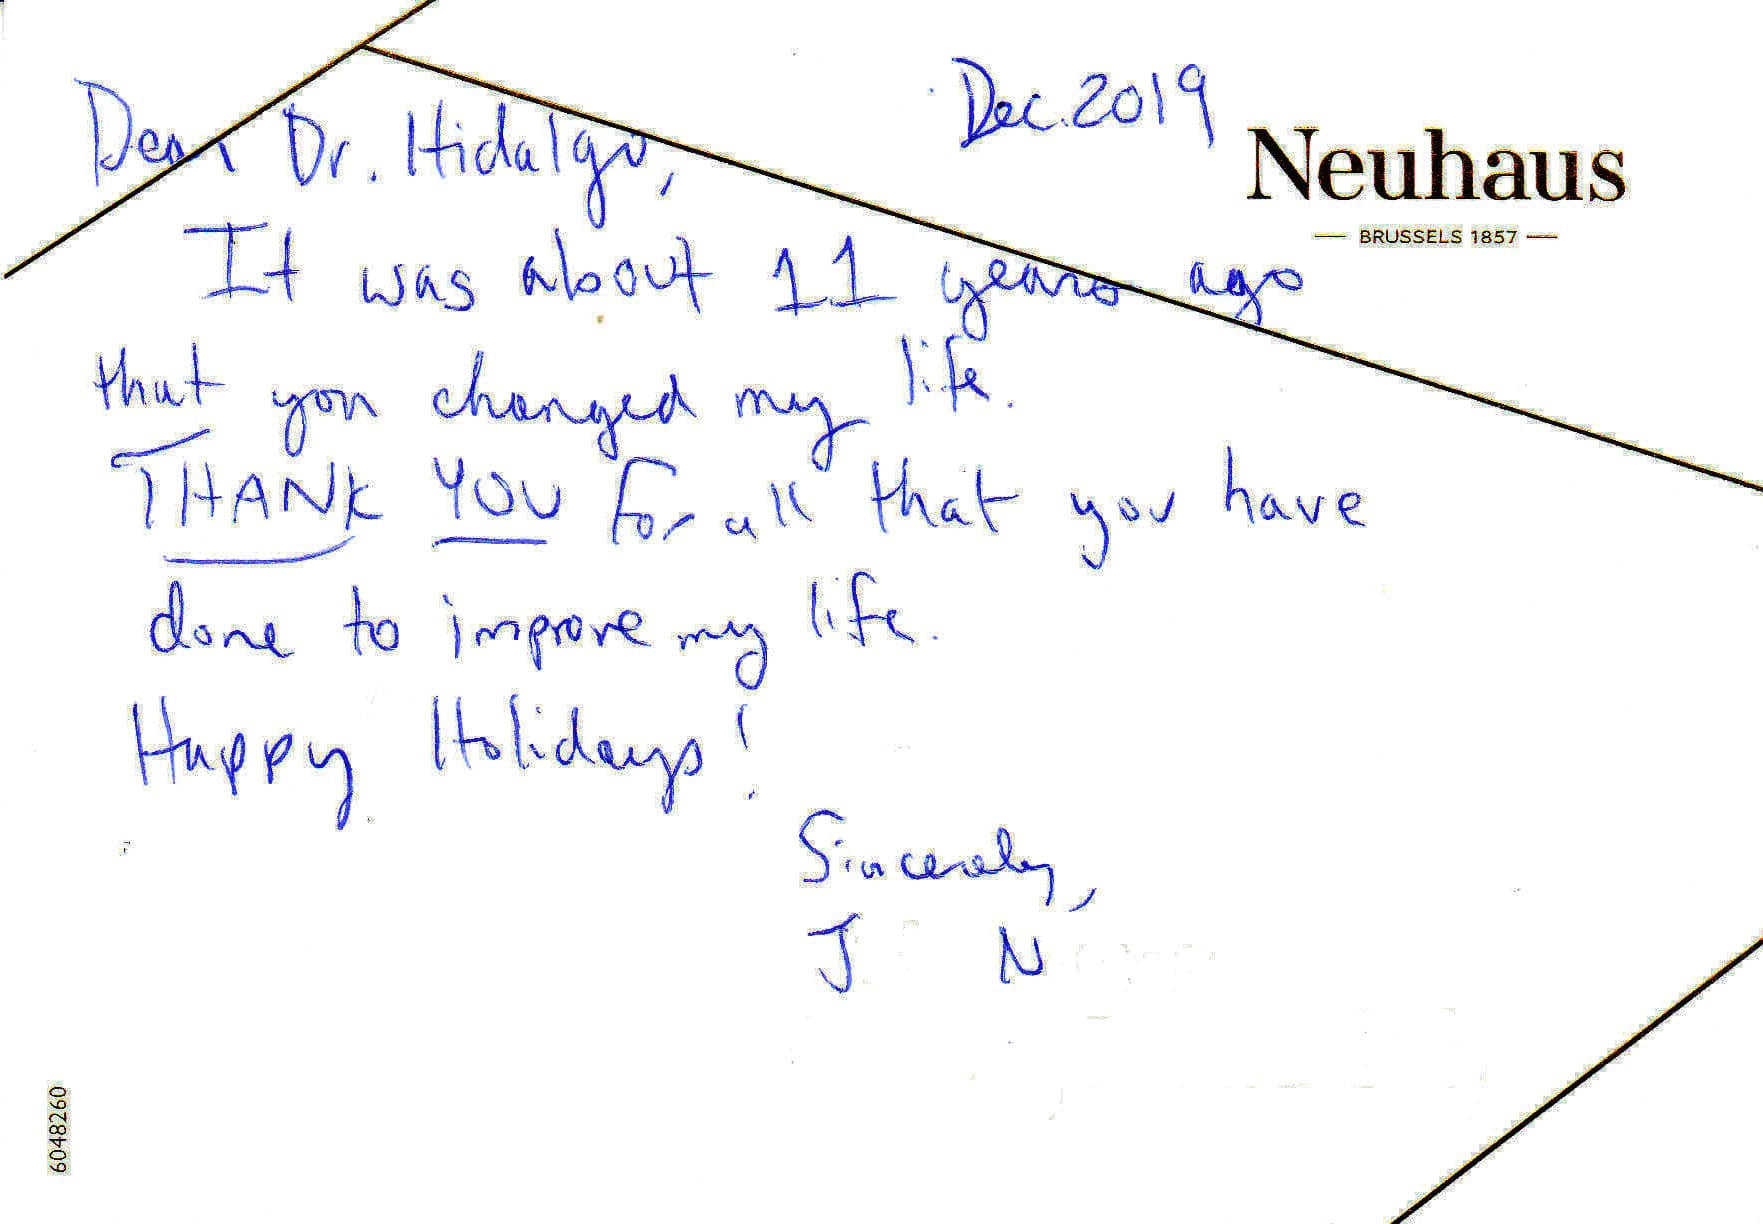 Dec. 2019
Neuhaus
— BRUSSELS 1857 —
Dear Dr. Hidalgo,
It was about 11 years ago
that you changed my life.
THANK YOU for all that you have
done to improve my life.
Happy Holidays!
Sincerely,
J N
6048260